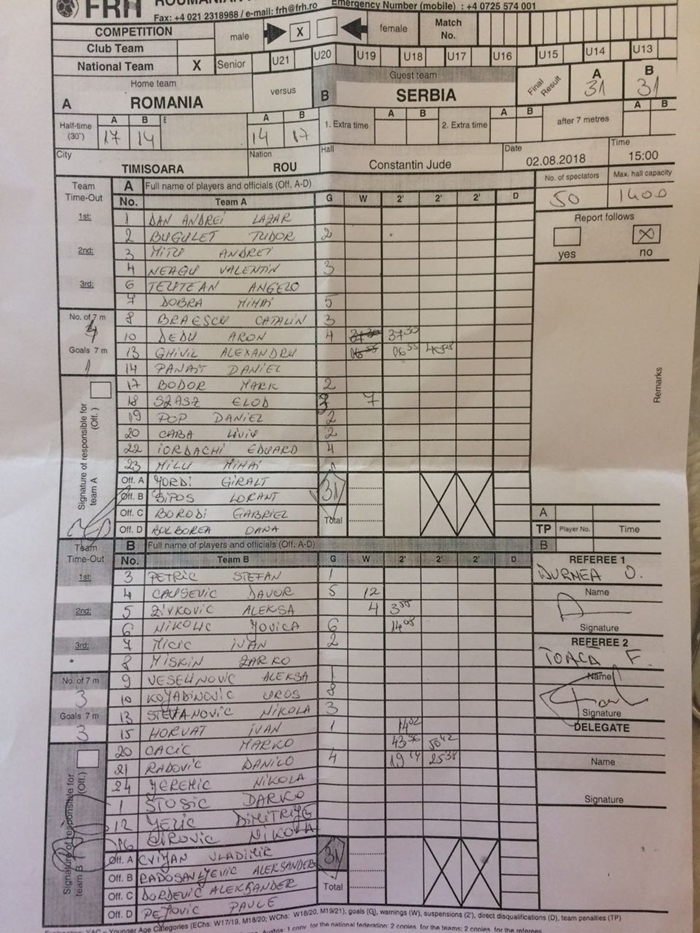 FRH
Fax: +4 021 2318988 / e-mail: frh@frh.ro Emergency Number (mobile) : +4 0725 574 001
COMPETITION male X female Match No.
Club Team
National Team X Senior U21 U20 U19 U18 U17 U16 U15 U14 U13
Home team versus Guest team Final Result A B
A ROMANIA B SERBIA 31 31
Half-time (30') A B A B 1. Extra time A B 2. Extra time A B after 7 metres A B
17 14 14 17
City Nation Hall Date Time
TIMISOARA ROU Constantin Jude 02.08.2018 15:00
No. of spectators Max. hall capacity
50 1400
Report follows
yes X no
Remarks
Team Time-Out A Full name of players and officials (Off. A-D)
No. Team A G W 2' 2' 2' D
1st:
1 DAN ANDREI LAZAR
2 BUGULET TUDOR 2
2nd:
3 MITU ANDREI
4 NEAGU VALENTIN 3
3rd:
6 TELITEAN ANGELO
7 DOBRA MIHAI 5
No. of 7 m
8 BRAESCU CATALIN 3
10 DEDU ARON 4 37:30
Goals 7 m 1
13 GHIVIL ALEXANDRU
14 DANIEL
17 BODOR MARK 2
18 SZASZ ELOD 7
19 POP DANIEL 2
20 CABA LIVIU 2
22 IORDACHI EDUARD 4
23 MILU MIHAI
Signature of responsible for team A (Off. )
Off. A YORDI GIRALT 31
Off. B SIPOS LORANT
Off. C BORODI GABRIEL Total
Off. D BOLBOREA DANA
A
TP Player No. Time
B
Team Time-Out B Full name of players and officials (Off. A-D)
No. Team B G W 2' 2' 2' D
1st:
3 PETRIC STEFAN 1
4 CAUSEVIC DAVOR 5 12
2nd:
5 ZIVKOVIC ALEKSA 4
6 NIKOLIC JOVICA 6
3rd:
7 MICIC IVAN 2
8 MISKIN ZARKO
No. of 7 m 3
9 VESELINOVIC ALEKSA 1
10 KOJADINOVIC UROS 8
Goals 7 m 3
13 STEVANOVIC NIKOLA 3
15 HORVAT IVAN 1
20 CACIC MARKO
21 RADOVIC DANILO 4
24 JEREMIC NIKOLA
1 STOSIC DARKO
12 JEZIC DIMITRIJE
16 NIKOLA
Signature of responsible for team B (Off. )
Off. A CVIJAN VLADIMIR 31
Off. B RADOSAVLJEVIC ALEKSANDER
Off. C DORDEVIC ALEKSANDER Total
Off. D PETROVIC PAVLE
REFEREE 1
DURNEA O.
Name
Signature
REFEREE 2
TOACA F.
Name
Signature
DELEGATE
Name
Signature
Younger Age Categories (EChs: W17/19, M18/20; WChs: W18/20, M19/21), goals (G), warnings (W), suspensions (2'), direct disqualifications (D), team penalties (TP)
1 copy for the national federation: 2 copies for the teams: 2 copies for the referees